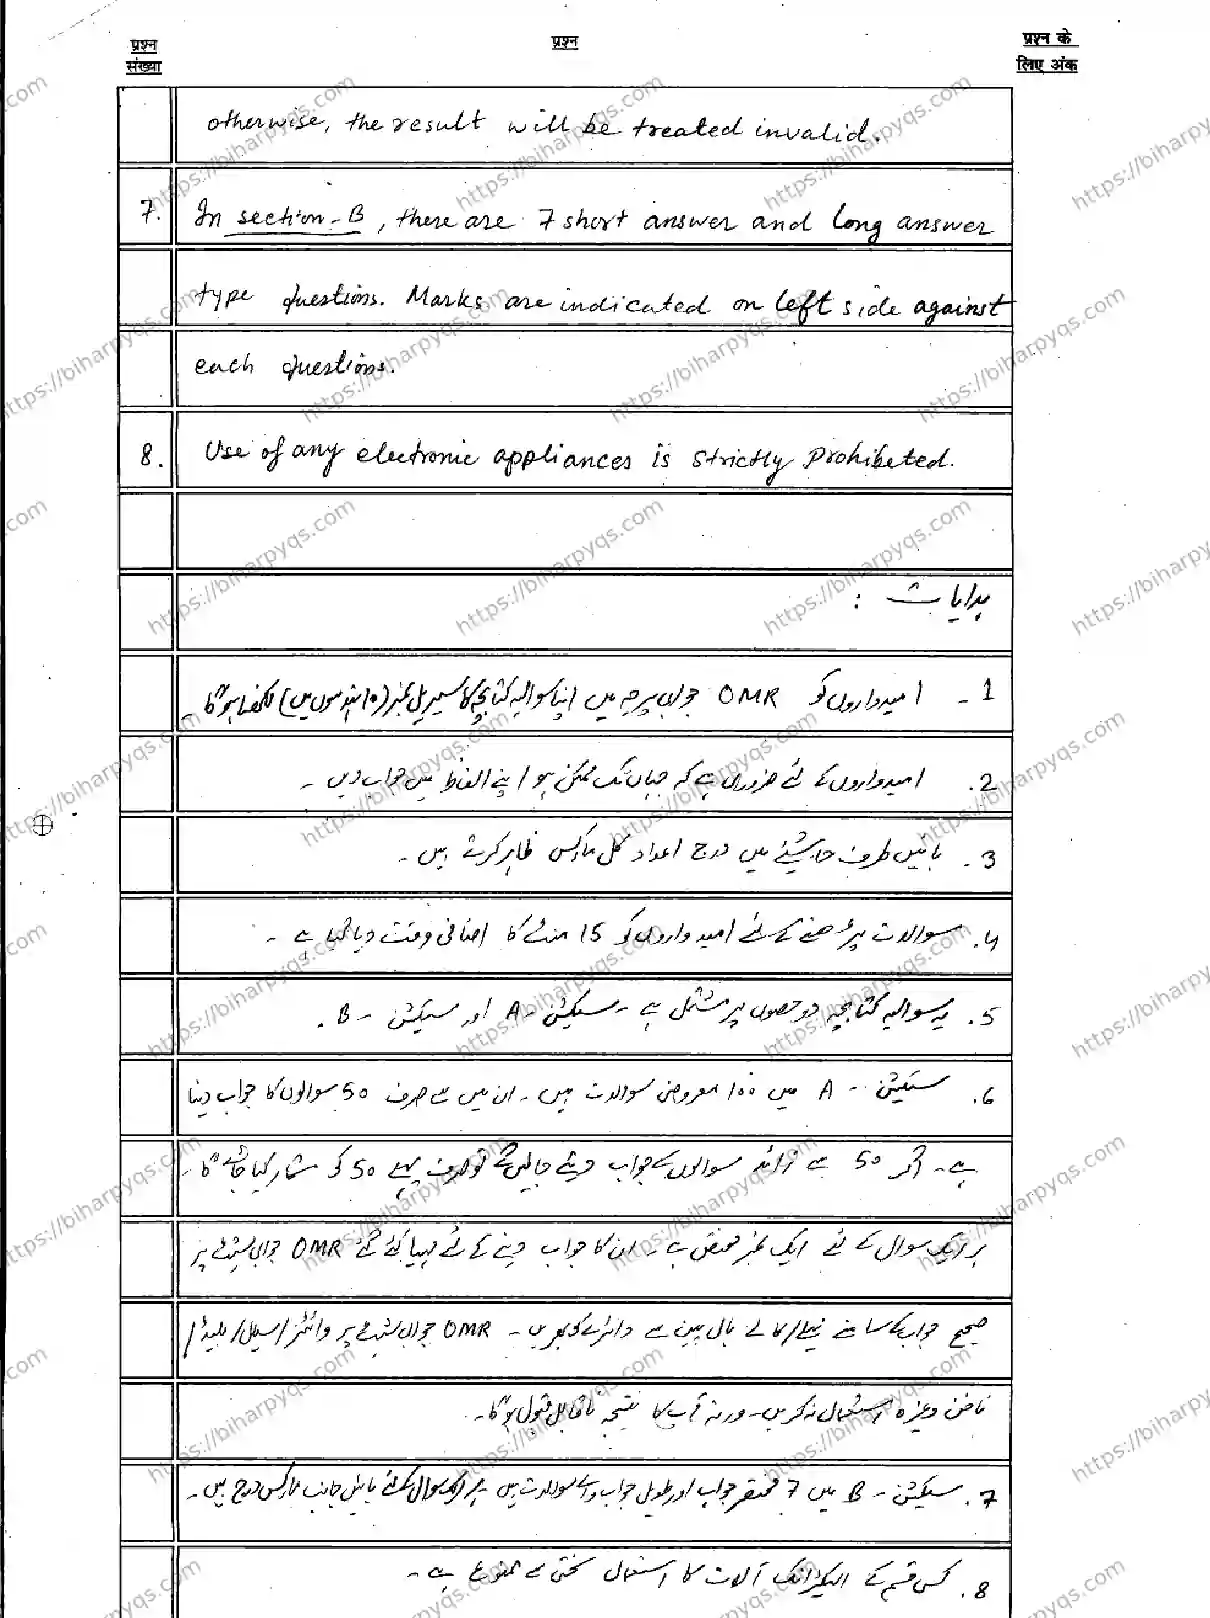 प्रश्न संख्या
प्रश्न
प्रश्न के लिए अंक
otherwise, the result will be treated invalid.
7. In section-B, there are 7 short answer and long answer
type questions. Marks are indicated on left side against
each questions.
8. Use of any electronic appliances is strictly prohibited.
ہدایات :
1- امیدواروں کو OMR جوابی پرچہ میں اپنا سوالیہ کتابچہ کا سیریل نمبر (10 ہندسوں میں) لکھنا ہوگا۔
2. امیدواروں کے لئے ضروری ہے کہ جہاں تک ممکن ہو اپنے الفاظ میں جواب دیں۔
3. بائیں طرف حاشیئے میں درج اعداد کل مارکس ظاہر کرتے ہیں۔
4. سوالات پڑھنے کے لئے امیدواروں کو 15 منٹ کا اضافی وقت دیا گیا ہے۔
5. یہ سوالیہ کتابچہ دو حصوں پر مشتمل ہے۔ سیکشن-A اور سیکشن-B.
6. سیکشن-A میں 100 معروضی سوالات ہیں۔ ان میں سے صرف 50 سوالوں کا جواب دینا
ہے۔ اگر 50 سے زائد سوالوں کے جواب دیئے جائیں گے تو صرف پہلے 50 کو شمار کیا جائے گا۔
ہر ایک سوال کے لئے ایک نمبر مختص ہے۔ ان کا جواب دینے کے لئے مہیا کئے گئے OMR جوابی شیٹ پر
صحیح جواب کے سامنے نیلے/کالے بال پین سے دائرے کو بھریں۔ OMR جوابی شیٹ پر وائٹنر/سیال/بلیڈ/
ناخن وغیرہ استعمال نہ کریں۔ ورنہ آپ کا نتیجہ ناقابل قبول ہوگا۔
7. سیکشن-B میں 7 مختصر جواب اور طویل جواب والے سوالات ہیں۔ ہر ایک سوال کے لئے بائیں جانب مارکس درج ہیں۔
8. کسی قسم کے الیکٹرانک آلات کا استعمال سختی سے ممنوع ہے۔
https://biharpyqs.com